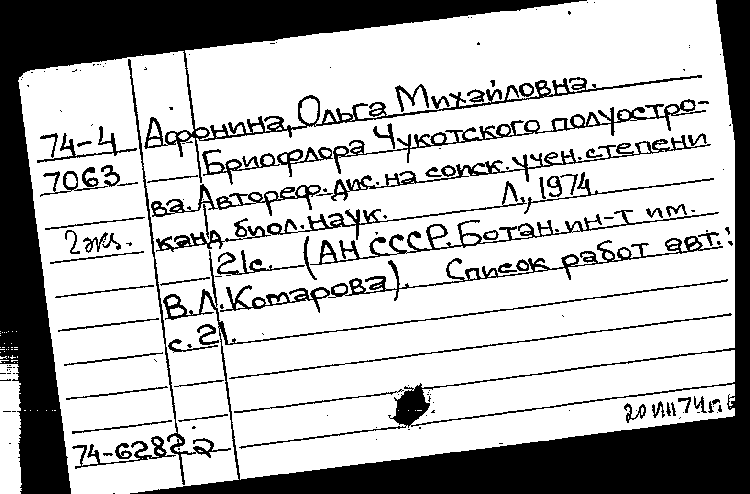 74-4 Афонина, Ольга Михайловна.
7063 Бриофлора Чукотского полуостро-
ва. Автореф. дис. на соиск. учен. степени
2 экз. канд. биол. наук. Л., 1974.
21с. (АН СССР. Ботан. ин-т им.
В.Л. Комарова). Список работ авт.:
с. 21.
74-62822